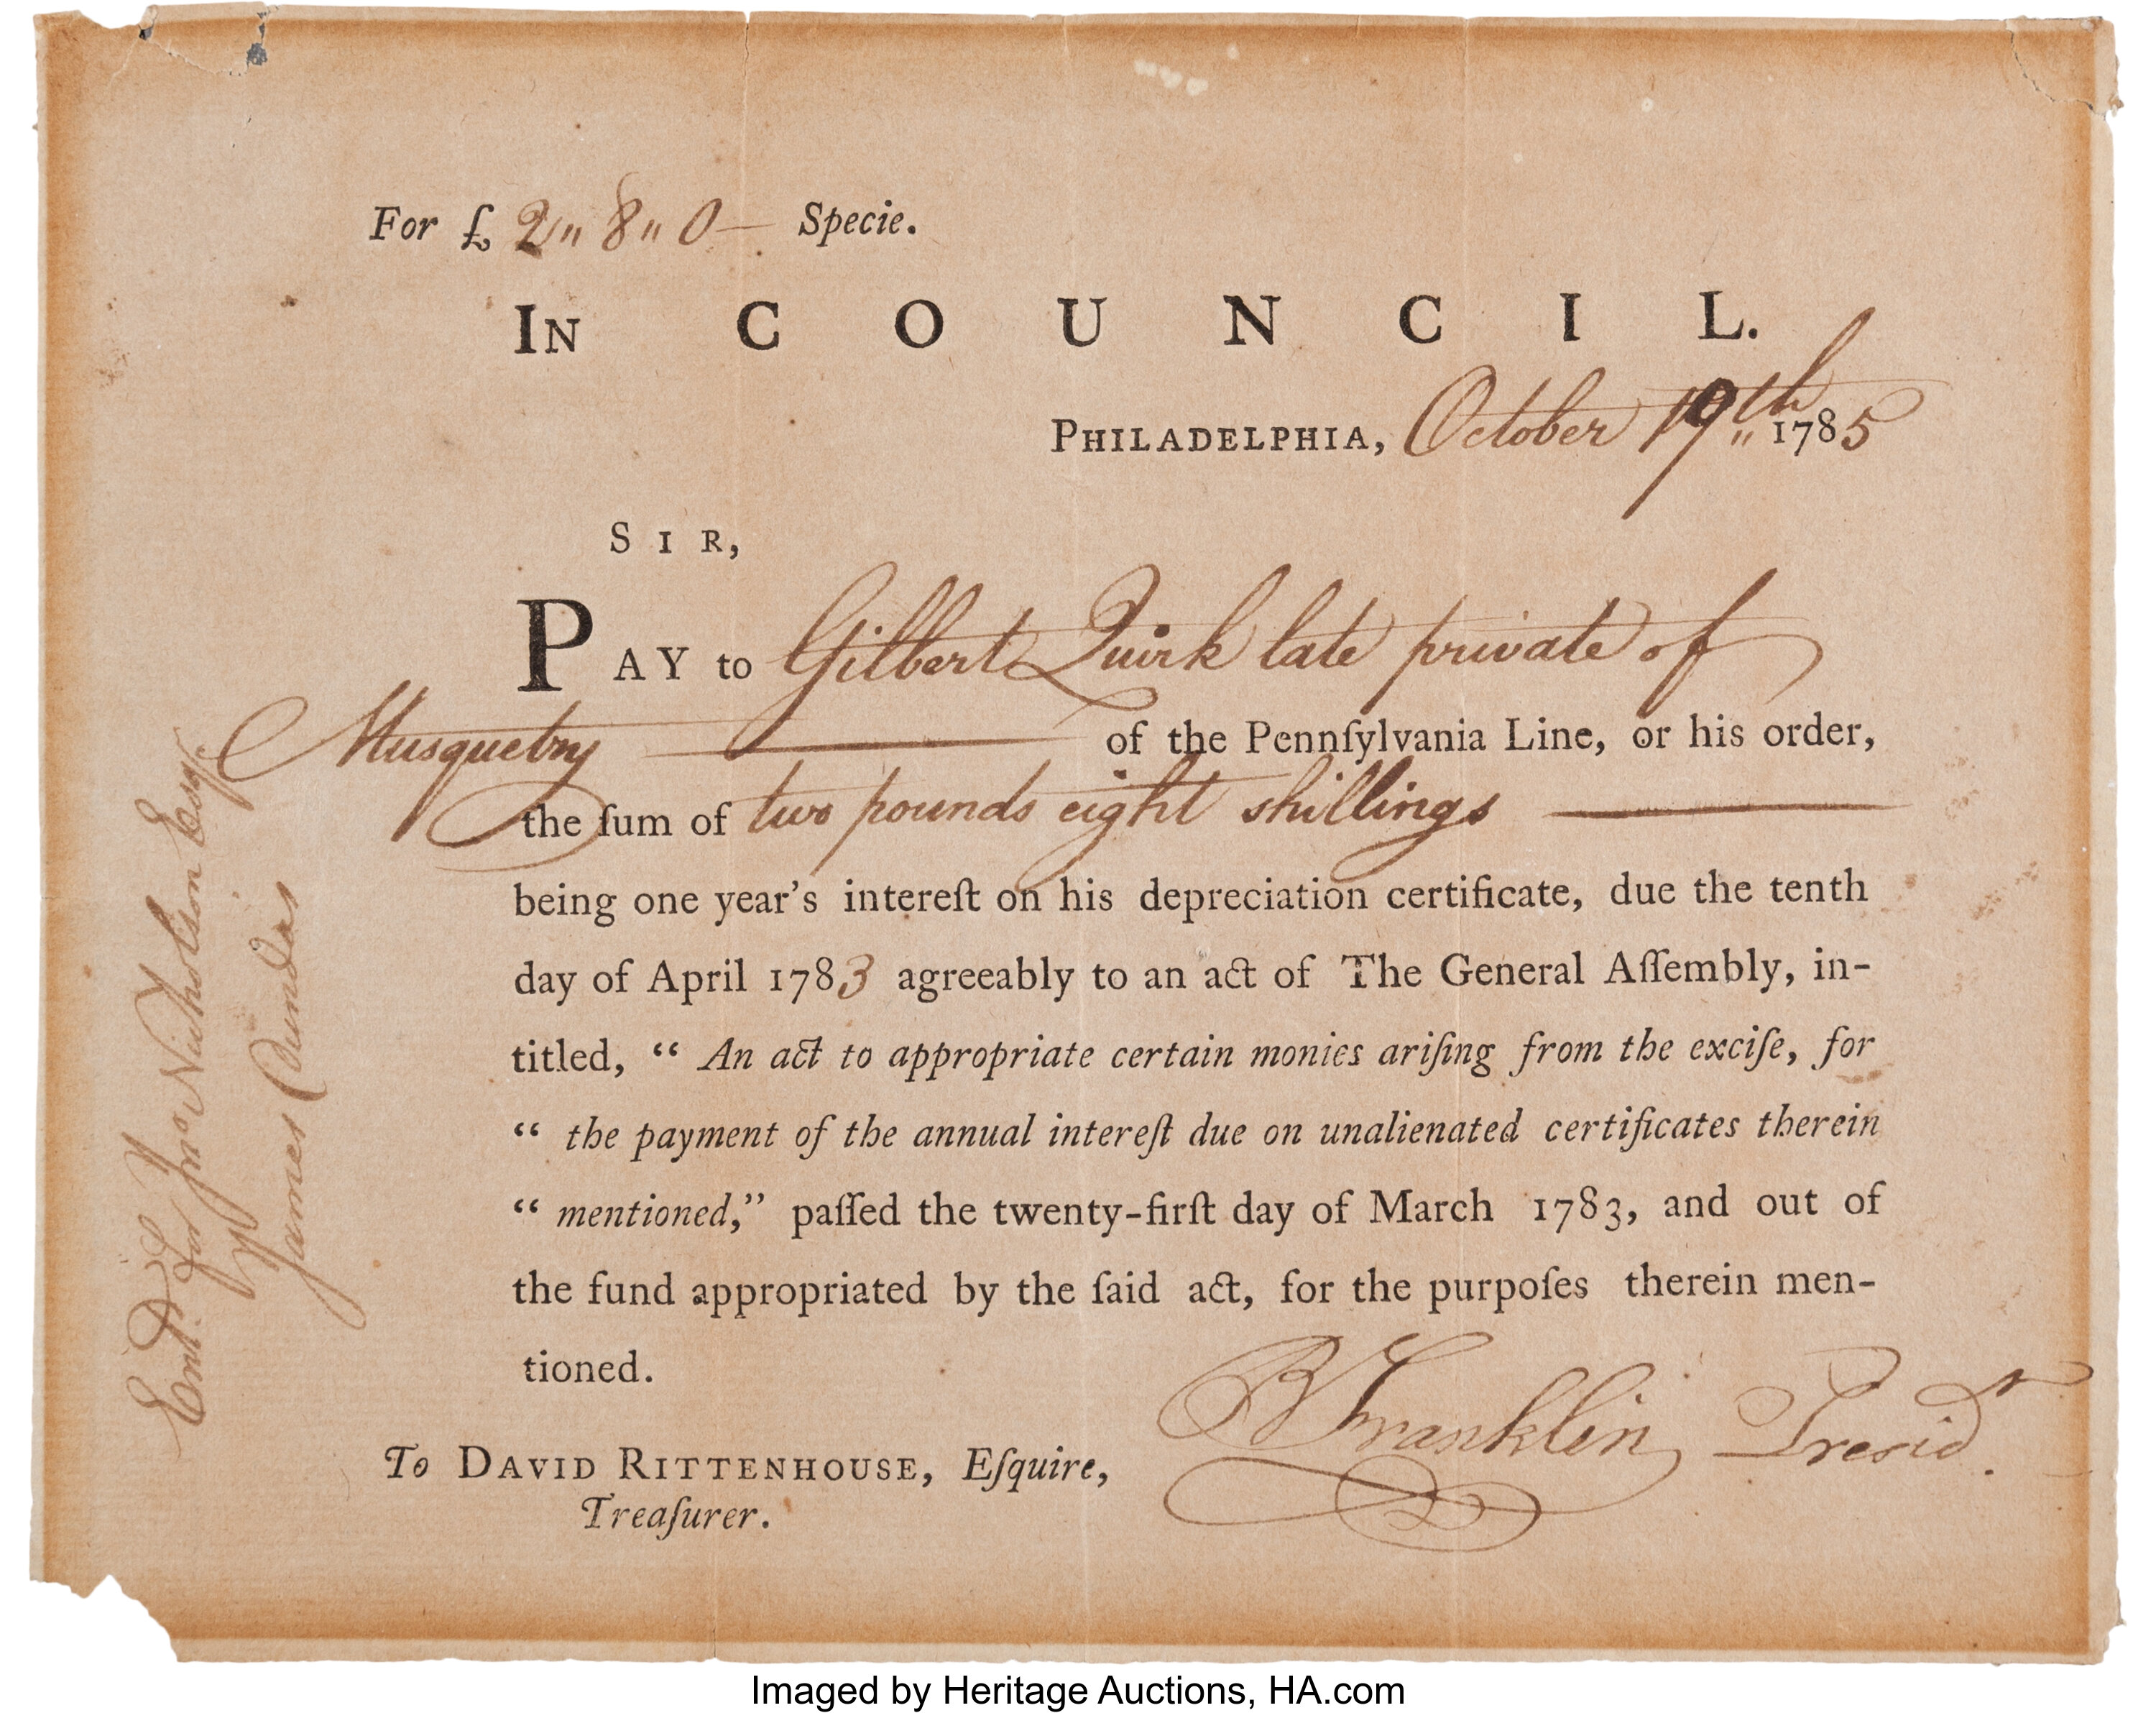 For £ 2 " 8 " 0 — Specie.
IN COUNCIL.
PHILADELPHIA, October 19th " 1785
SIR,
PAY to Gilbert Quirk late private of
Musquetry — of the Pennſylvania Line, or his order,
the ſum of two pounds eight shillings —
being one year's intereſt on his depreciation certificate, due the tenth
day of April 1783 agreeably to an act of The General Aſſembly, in-
titled, “ An act to appropriate certain monies ariſing from the exciſe, for
“ the payment of the annual intereſt due on unalienated certificates therein
“ mentioned,” paſſed the twenty-firſt day of March 1783, and out of
the fund appropriated by the ſaid act, for the purpoſes therein men-
tioned.
B Franklin Presidt.
To DAVID RITTENHOUSE, Eſquire,
Treaſurer.
Entd. for Jno Nicholson Esqr.
James Dundas
Imaged by Heritage Auctions, HA.com